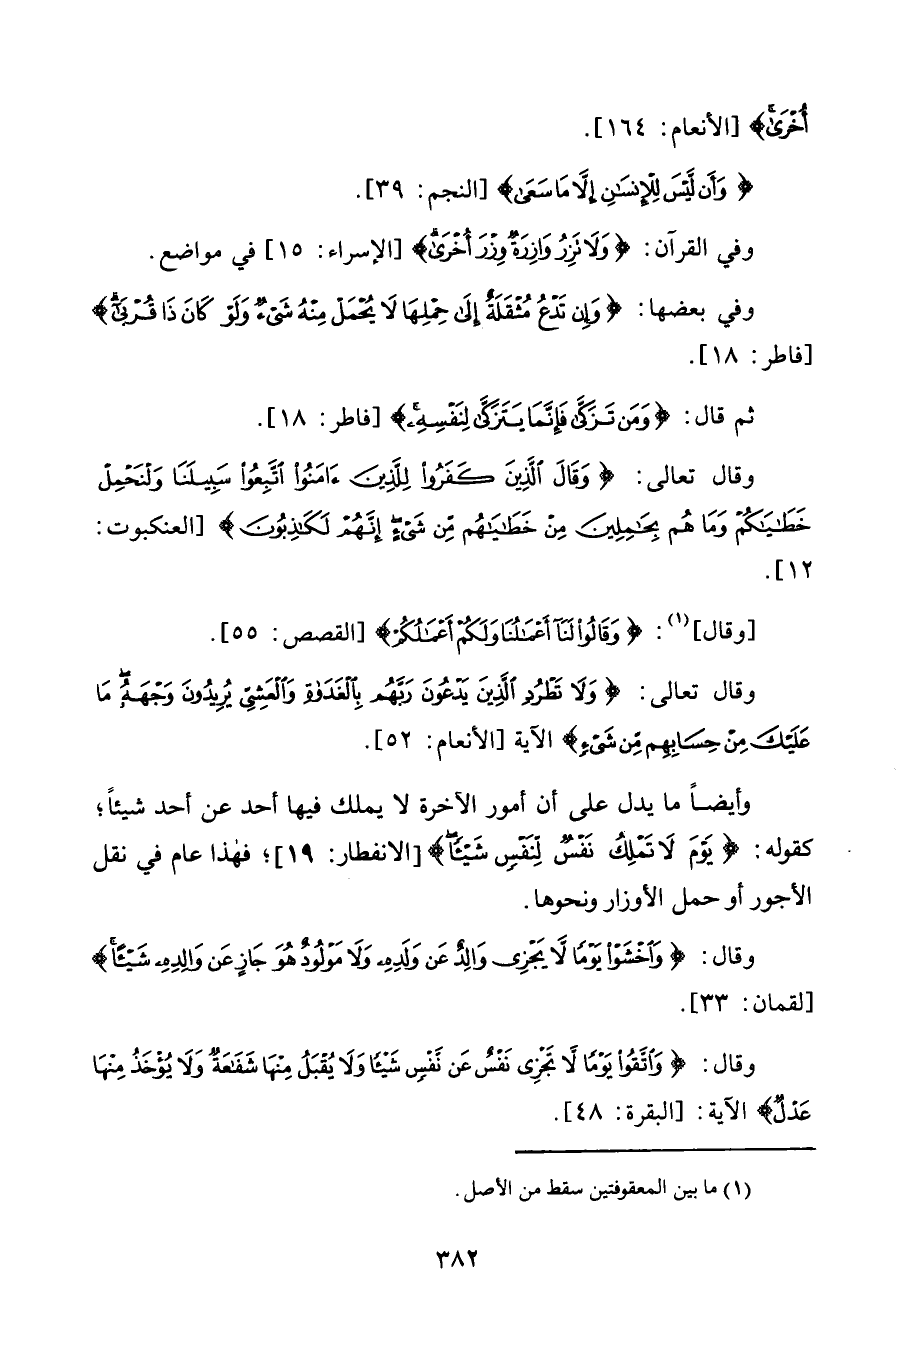 أُخْرَىٰۚ﴾ [الأنعام: ١٦٤].
﴿وَأَن لَّيْسَ لِلْإِنسَٰنِ إِلَّا مَا سَعَىٰ﴾ [النجم: ٣٩].
وفي القرآن: ﴿وَلَا تَزِرُ وَازِرَةٌ وِزْرَ أُخْرَىٰۗ﴾ [الإسراء: ١٥] في مواضع.
وفي بعضها: ﴿وَإِن تَدْعُ مُثْقَلَةٌ إِلَىٰ حِمْلِهَا لَا يُحْمَلْ مِنْهُ شَىْءٌ وَلَوْ كَانَ ذَا قُرْبَىٰٓۗ﴾
[فاطر: ١٨].
ثم قال: ﴿وَمَن تَزَكَّىٰ فَإِنَّمَا يَتَزَكَّىٰ لِنَفْسِهِۦۚ﴾ [فاطر: ١٨].
وقال تعالى: ﴿وَقَالَ ٱلَّذِينَ كَفَرُوا۟ لِلَّذِينَ ءَامَنُوا۟ ٱتَّبِعُوا۟ سَبِيلَنَا وَلْنَحْمِلْ
خَطَٰيَٰكُمْ وَمَا هُم بِحَٰمِلِينَ مِنْ خَطَٰيَٰهُم مِّن شَىْءٍۖ إِنَّهُمْ لَكَٰذِبُونَ﴾ [العنكبوت:
١٢].
[وقال]⁽١⁾: ﴿وَقَالُوا۟ لَنَآ أَعْمَٰلُنَا وَلَكُمْ أَعْمَٰلُكُمْ﴾ [القصص: ٥٥].
وقال تعالى: ﴿وَلَا تَطْرُدِ ٱلَّذِينَ يَدْعُونَ رَبَّهُم بِٱلْغَدَوٰةِ وَٱلْعَشِىِّ يُرِيدُونَ وَجْهَهُۥۖ مَا
عَلَيْكَ مِنْ حِسَابِهِم مِّن شَىْءٍ﴾ الآية [الأنعام: ٥٢].
وأيضاً ما يدل على أن أمور الآخرة لا يملك فيها أحد عن أحد شيئاً؛
كقوله: ﴿يَوْمَ لَا تَمْلِكُ نَفْسٌ لِّنَفْسٍ شَيْـًٔاۖ﴾ [الانفطار: ١٩]؛ فهٰذا عام في نقل
الأجور أو حمل الأوزار ونحوها.
وقال: ﴿وَٱخْشَوْا۟ يَوْمًا لَّا يَجْزِى وَالِدٌ عَن وَلَدِهِۦ وَلَا مَوْلُودٌ هُوَ جَازٍ عَن وَالِدِهِۦ شَيْـًٔاۚ﴾
[لقمان: ٣٣].
وقال: ﴿وَٱتَّقُوا۟ يَوْمًا لَّا تَجْزِى نَفْسٌ عَن نَّفْسٍ شَيْـًٔا وَلَا يُقْبَلُ مِنْهَا شَفَٰعَةٌ وَلَا يُؤْخَذُ مِنْهَا
عَدْلٌ﴾ الآية: [البقرة: ٤٨].
(١) ما بين المعقوفتين سقط من الأصل.
٣٨٢